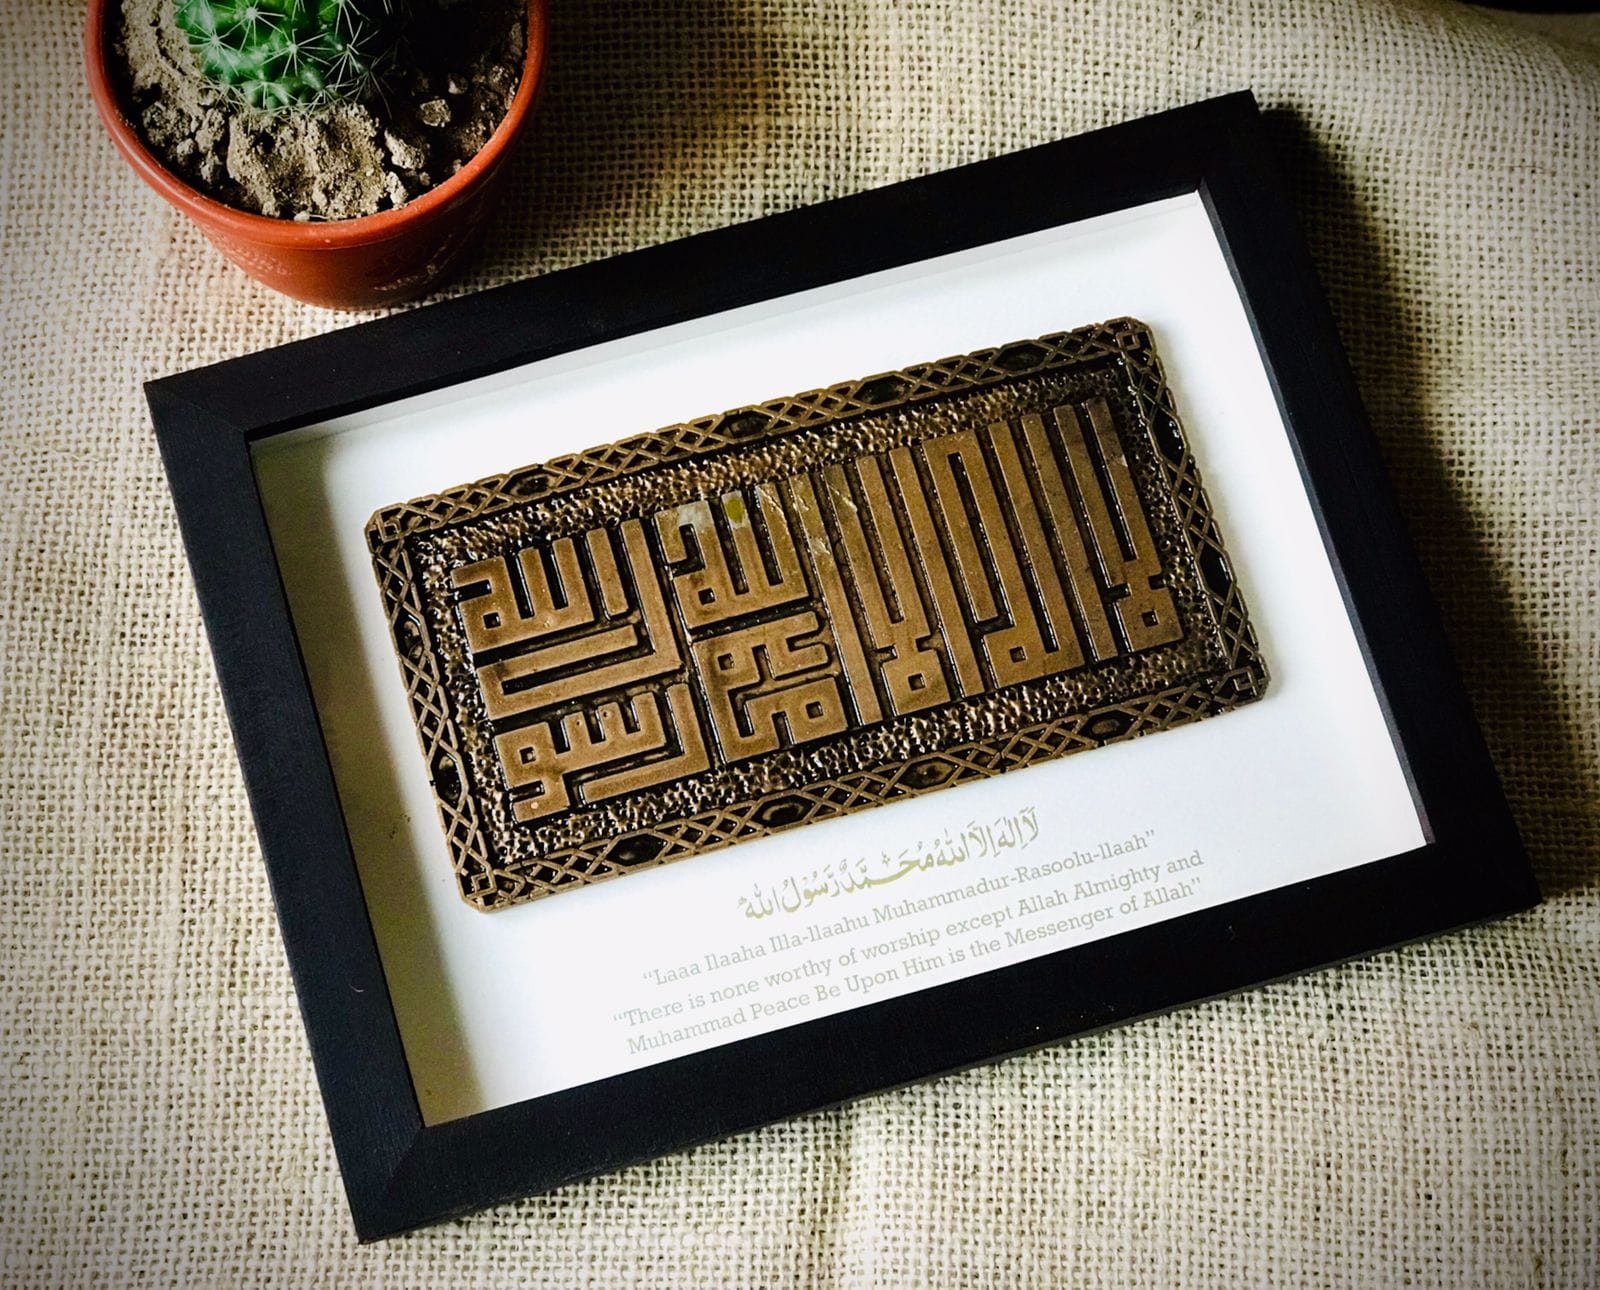 لا اله الا الله محمد رسول الله
لَاۤ اِلٰهَ اِلَّا اللّٰهُ مُحَمَّدٌ رَّسُوْلُ اللّٰهِ
“Laaa Ilaaha Illa-llaahu Muhammadur-Rasoolu-llaah”
“There is none worthy of worship except Allah Almighty and
Muhammad Peace Be Upon Him is the Messenger of Allah”